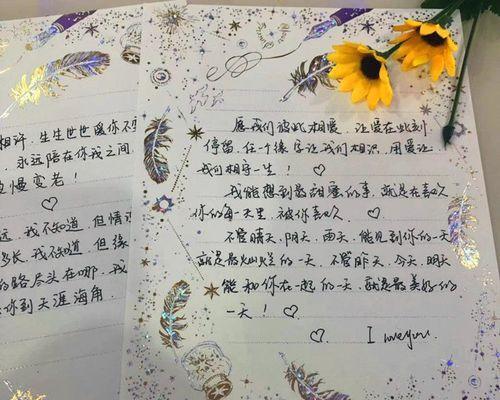 相许，生生世世爱你不
永远陪在你我之间，
慢变老！
远，我不知道，但情
多长，我不知道，但缘
的路尽头在哪，我
你到天涯海角．
愿我们彼此相爱，让爱在此刻
停留，任一个缘字让我们相识，用爱让
我们相守一生！♡
我能想到最甜蜜的事，就是在喜欢
你的每一天里，被你喜欢 ♡
不管晴天，阴天，雨天，能见到你的一天
就是最灿烂的一天，不管昨天，今天，明天
能和你在一起的一天，就是最美好的
一天！♡
♡ I love you.